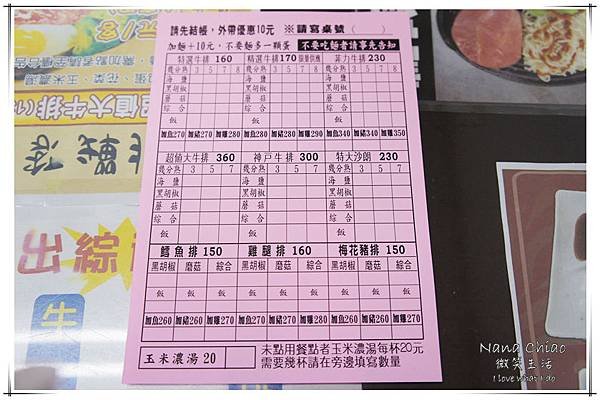 請先結帳，外帶優惠10元 ※請寫桌號( )
加麵+10元，不要麵多一顆蛋 不要吃麵者請事先告知
特選牛排 160 精選牛排170限量供應 菲力牛排230
幾分熟 3 5 7 8 幾分熟 3 5 7 8 幾分熟 3 5 7 8
海鹽 海鹽 海鹽
黑胡椒 黑胡椒 黑胡椒
蘑菇 蘑菇 蘑菇
綜合 綜合 綜合
飯 飯 飯
加魚270 加豬270 加雞280 加魚280 加豬280 加雞290 加魚340 加豬340 加雞350
超值大牛排 360 神戶牛排 300 特大沙朗 230
幾分熟 3 5 7 幾分熟 3 5 7 幾分熟 3 5 7
海鹽 海鹽 海鹽
黑胡椒 黑胡椒 黑胡椒
蘑菇 蘑菇 蘑菇
綜合 綜合 綜合
飯 飯 飯
鱈魚排 150 雞腿排 160 梅花豬排 150
黑胡椒 蘑菇 綜合 黑胡椒 蘑菇 綜合 黑胡椒 蘑菇 綜合
飯 飯 飯 飯 飯 飯 飯 飯 飯
加魚260 加豬260 加雞270 加魚270 加豬270 加雞280 加魚260 加豬260 加雞270
玉米濃湯 20
未點用餐點者玉米濃湯每杯20元
需要幾杯請在旁邊填寫數量
超值大牛排
出綜
牛
Nana Chiao
微笑生活
I love what I do